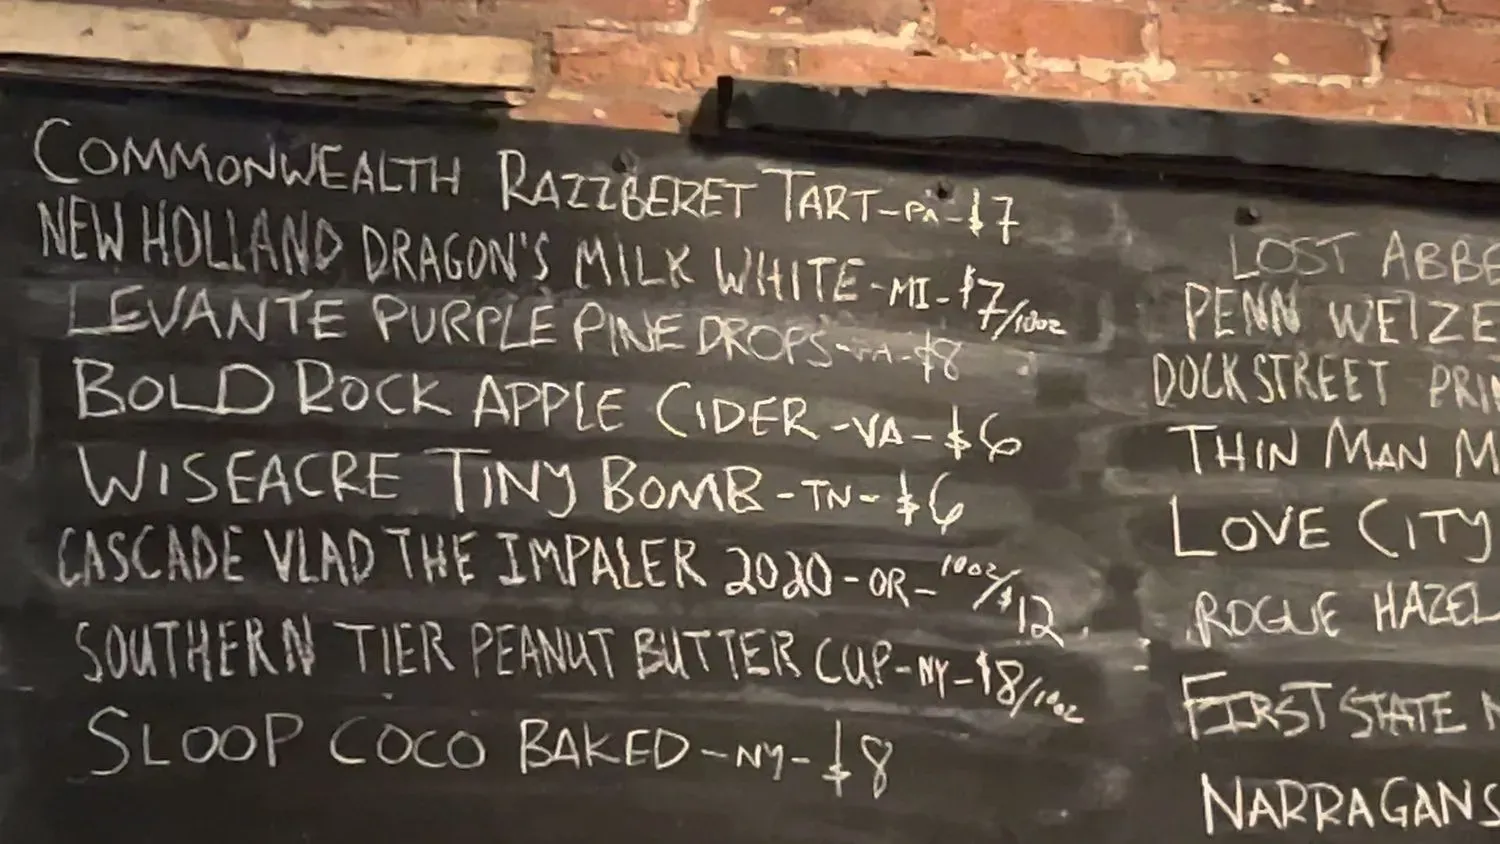 COMMONWEALTH RAZZBERET TART-PA-$7
NEW HOLLAND DRAGON'S MILK WHITE-MI-$7/10oz
LEVANTE PURPLE PINE DROPS-PA-$8
BOLD ROCK APPLE CIDER-VA-$6
WISEACRE TINY BOMB-TN-$6
CASCADE VLAD THE IMPALER 2020-OR-10oz/$12
SOUTHERN TIER PEANUT BUTTER CUP-NY-$8/10oz
SLOOP COCO BAKED-NY-$8
LOST ABBE
PENN WEIZE
DOCK STREET PRI
THIN MAN M
LOVE CITY
ROGUE HAZEL
FIRST STATE
NARRAGANS